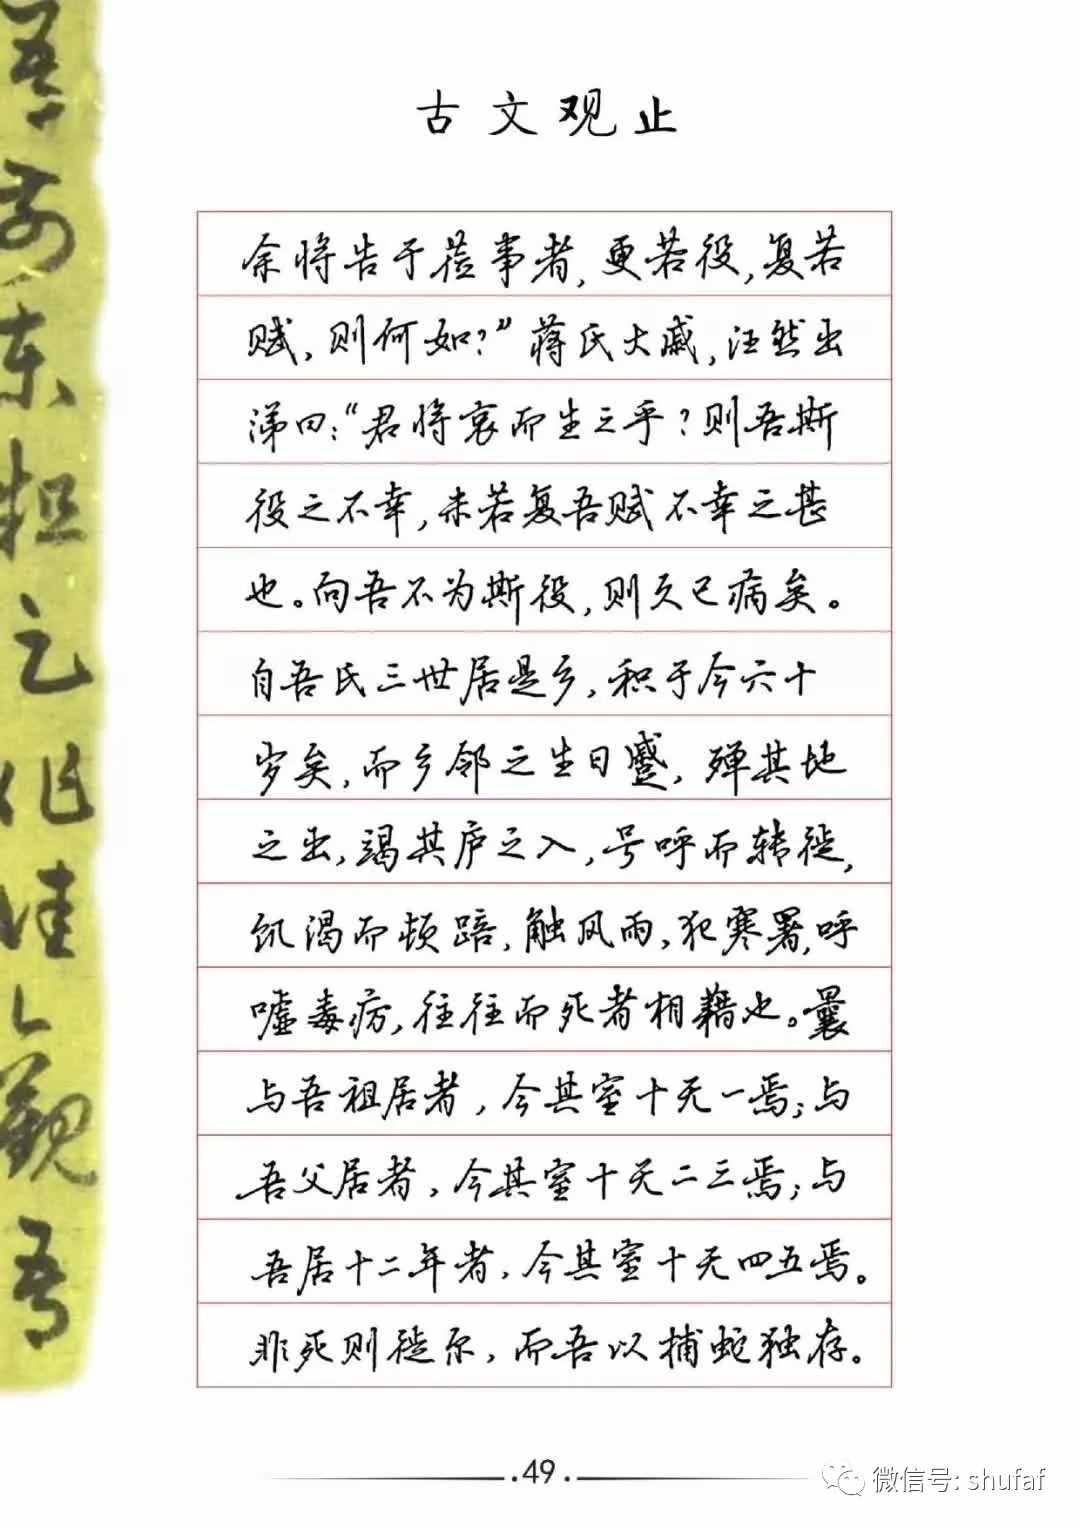 古文观止
余将告于莅事者,更若役,复若
赋,则何如?”蒋氏大戚,汪然出
涕曰:“君将哀而生之乎?则吾斯
役之不幸,未若复吾赋不幸之甚
也。向吾不为斯役,则久已病矣。
自吾氏三世居是乡,积于今六十
岁矣,而乡邻之生日蹙,殚其地
之出,竭其庐之入,号呼而转徙,
饥渴而顿踣,触风雨,犯寒暑,呼
嘘毒疠,往往而死者相藉也。曩
与吾祖居者,今其室十无一焉;与
吾父居者,今其室十无二三焉;与
吾居十二年者,今其室十无四五焉。
非死则徙尔,而吾以捕蛇独存。
·49·
微信号: shufaf